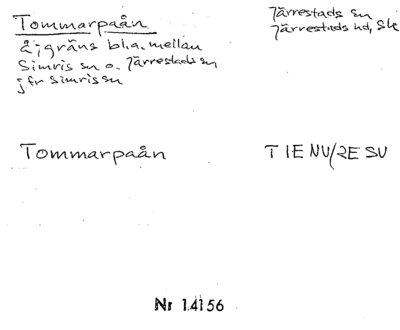 Tommarpaån
Järrestads sn
Järrestads hd, Sk
å; gräns bl.a. mellan
Simris sn o. Järrestads sn
jfr Simris sn
Tommarpaån
T 1E NV/2E SV
Nr 14156